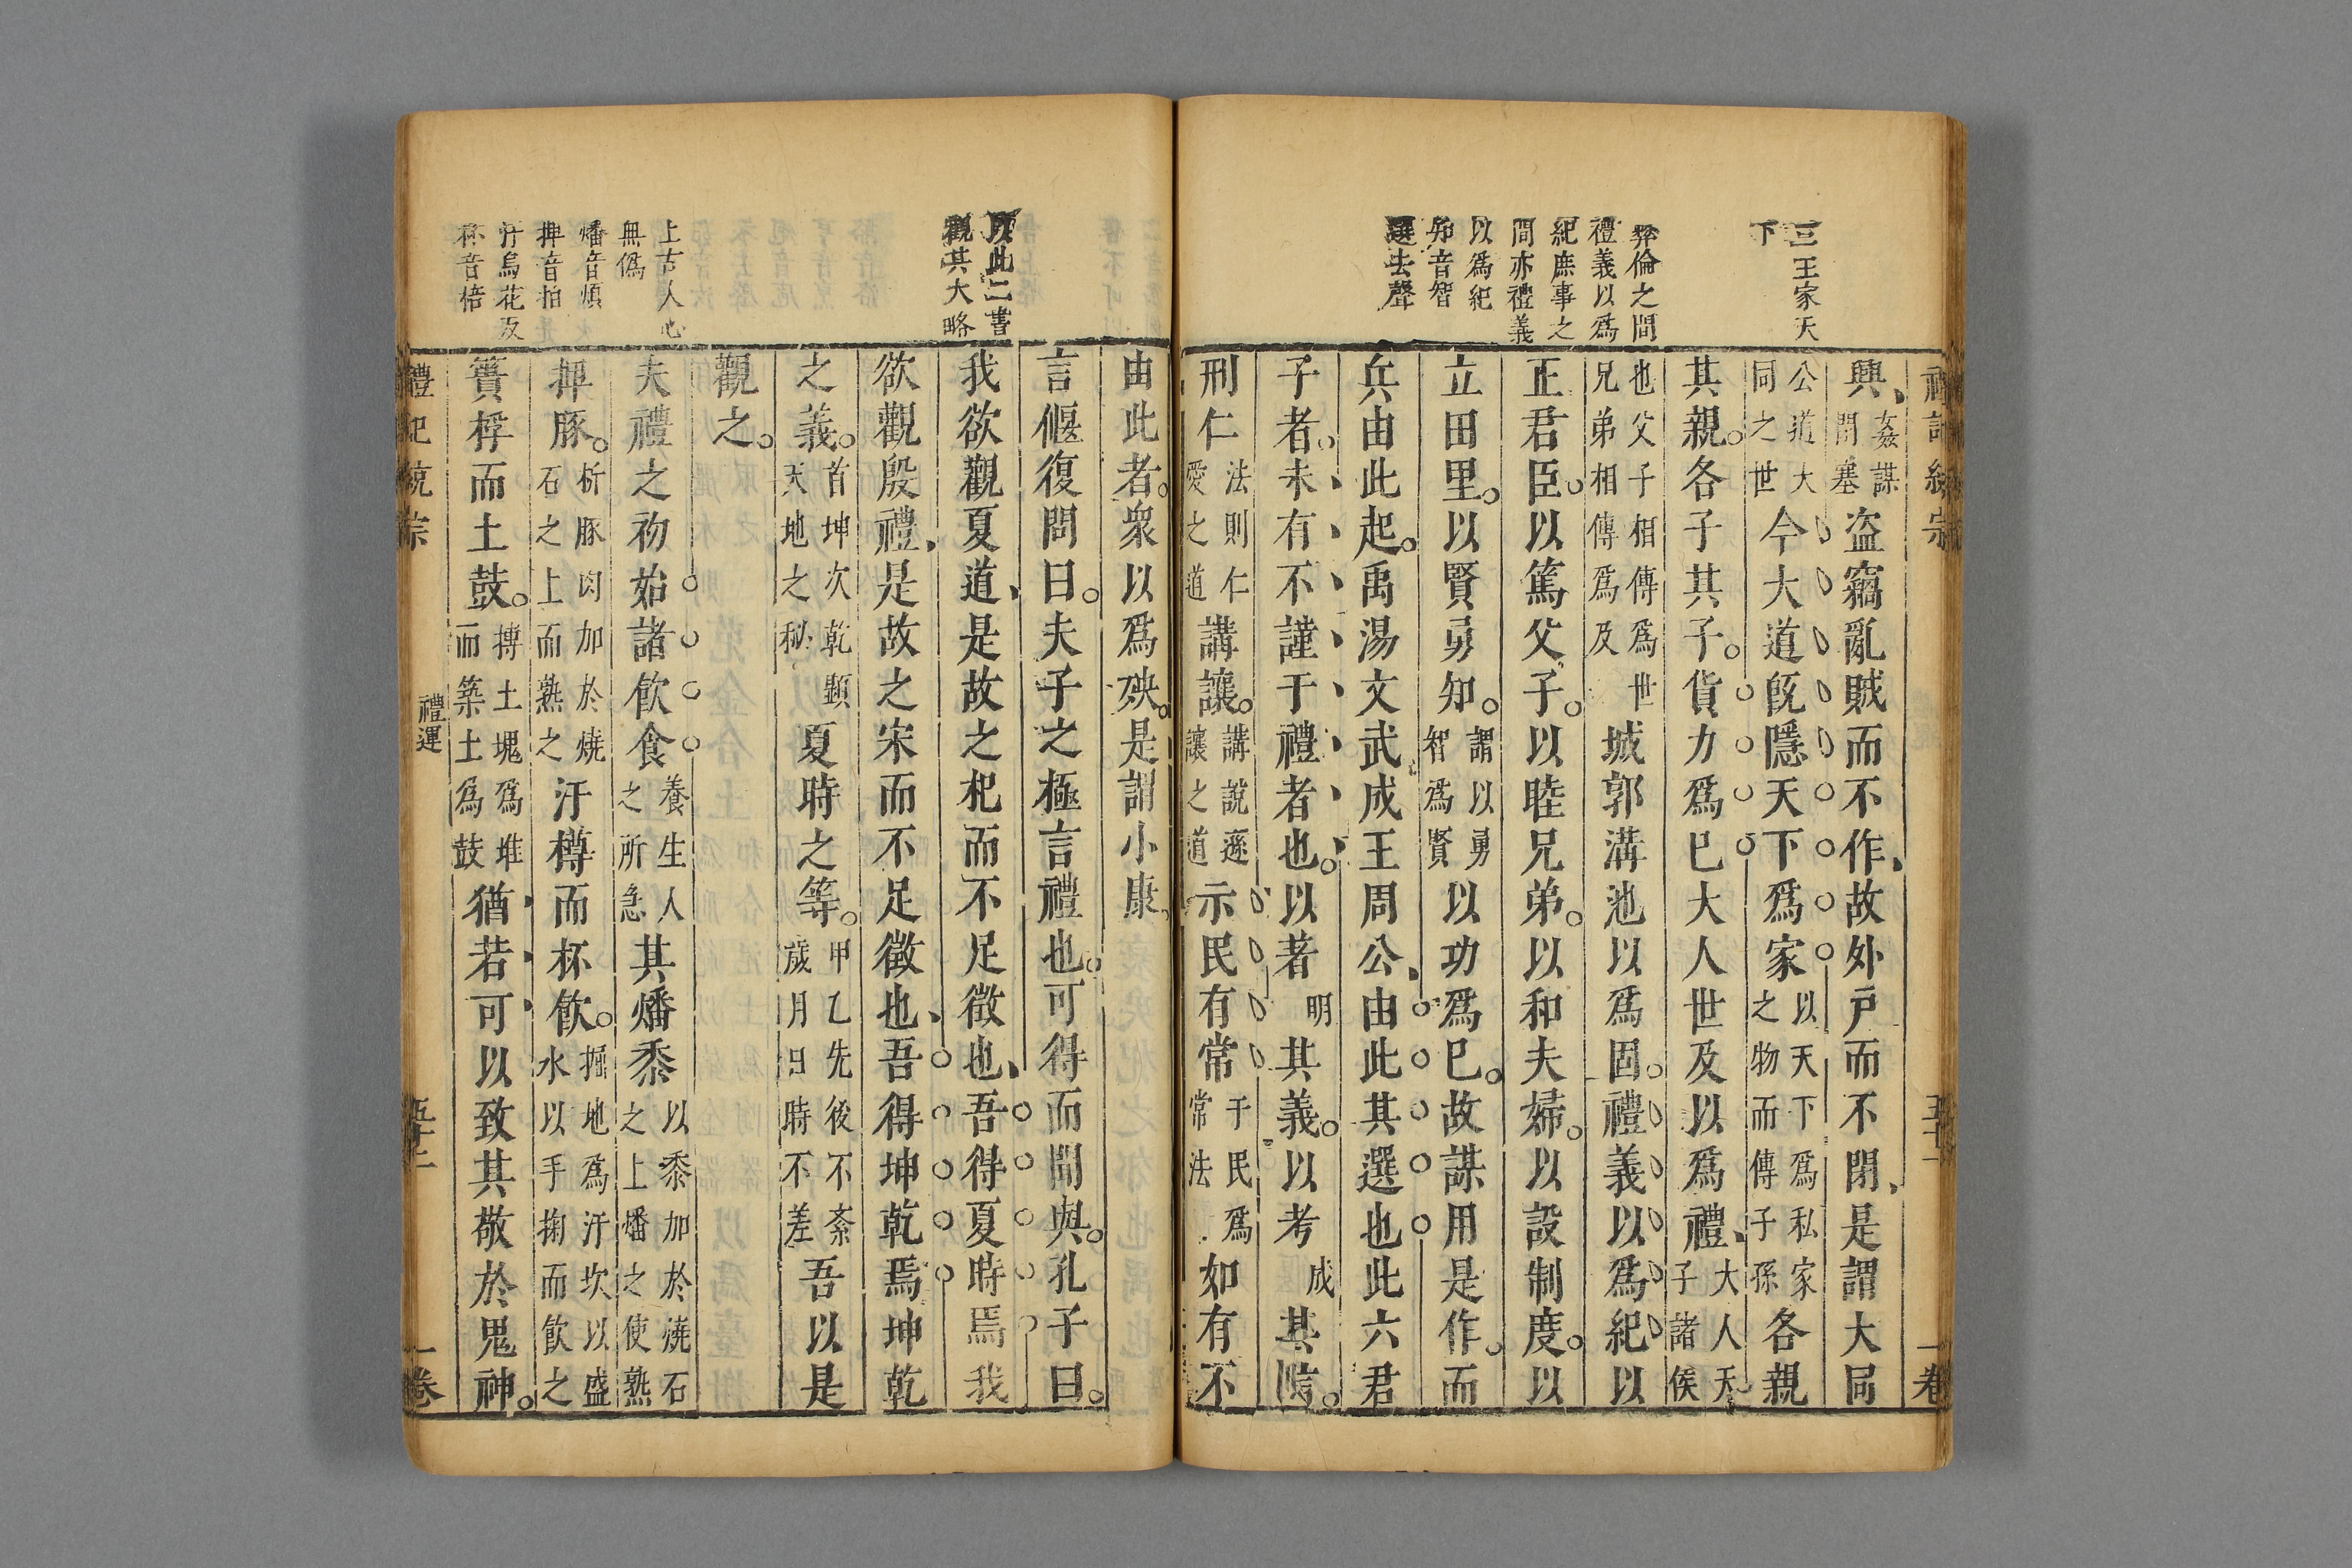 三王家天
下
彛倫之間
禮義以爲
紀庶事之
間亦禮義
以爲紀
知音智
選去聲
禮記統宗
五十一
一卷
興、姦謀閉塞盗竊亂賊而不作、故外戸而不閉、是謂大同
公道大同之世今大道旣隱天下爲家以天下爲私家之物而傳子孫各親
其親。各子其子。貨力爲已大人世及以爲禮、大人天子諸侯
也父子相傳爲世兄弟相傳爲及城郭溝池以爲固。禮義以爲紀以
正君臣。以篤父子。以睦兄弟。以和夫婦。以設制度。以
立田里。以賢勇知。謂以勇智爲賢以功爲已。故謀用是作。而
兵由此起。禹湯文武成王周公、由此其選也此六君
子者。未有不謹于禮者也。以著明其義。以考成其
刑仁法則仁愛之道講讓。講說遜讓之道示民有常于民爲常法如有不
由此者。衆以爲殃。是謂小康。
言偃復問曰。夫子之極言禮也。可得而聞與。孔子曰。
我欲觀夏道、是故之杞而不足徵也、吾得夏時焉我
欲觀殷禮、是故之宋而不足徵也、吾得坤乾焉坤乾
之義。首坤次乾顯天地之秘夏時之等。甲乙先後不紊歲月日時不差吾以是
觀之。
夫禮之初始諸飮食養生人之所急其燔黍以黍加於燒石之上燔之使熟
捭豚。析豚肉加於燒石之上而熟之汙樽而杯飮。掘地爲汙坎以盛水以手掬而飮之
蕢桴而土鼓。摶土塊爲堆而築土爲鼓猶若可以致其敬於鬼神。
以此二書
觀其大略
上古人心
無僞
燔音煩
捭音拍
汙烏花反
杯音掊
禮記統宗
禮運
五十二
一卷